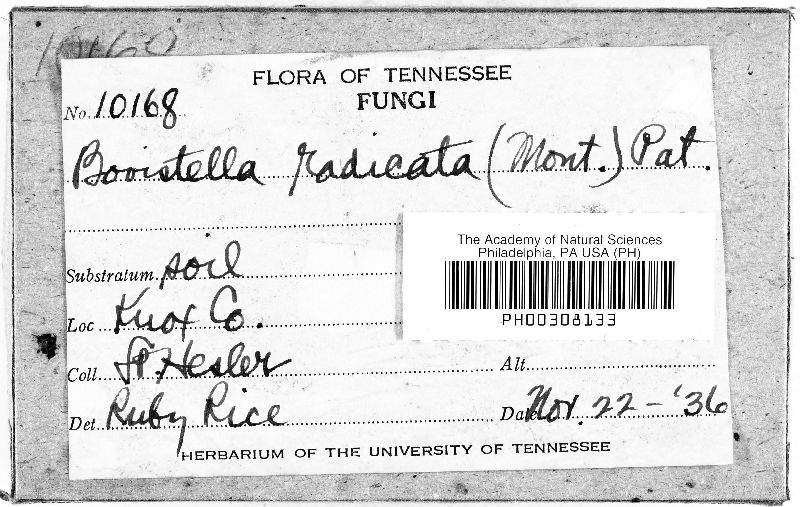 10160
FLORA OF TENNESSEE
FUNGI
No. 10168
Bovistella radicata (Mont.) Pat.
The Academy of Natural Sciences
Philadelphia, PA USA (PH)
PH00308133
Substratum soil
Loc Knox Co.
Coll Hesler
Alt.
Det Ruby Rice
Date Nov. 22 - '36
HERBARIUM OF THE UNIVERSITY OF TENNESSEE